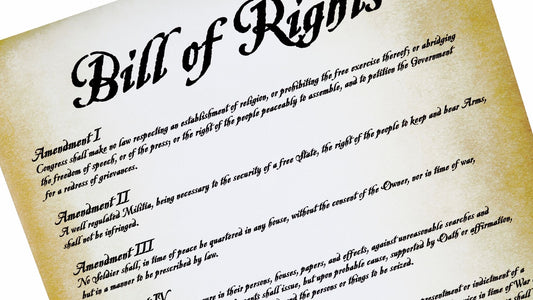 Bill of Rights
Amendment I
Congress shall make no law respecting an establishment of religion, or prohibiting the free exercise thereof; or abridging
the freedom of speech, or of the press; or the right of the people peaceably to assemble, and to petition the Government
for a redress of grievances.
Amendment II
A well regulated Militia, being necessary to the security of a free State, the right of the people to keep and bear Arms,
shall not be infringed.
Amendment III
No Soldier shall, in time of peace be quartered in any house, without the consent of the Owner, nor in time of war,
but in a manner to be prescribed by law.
IV
in their persons, houses, papers, and effects, against unreasonable searches and
shall issue, but upon probable cause, supported by Oath or affirmation,
the persons or things to be seized.
presentment or indictment of a
in time of War